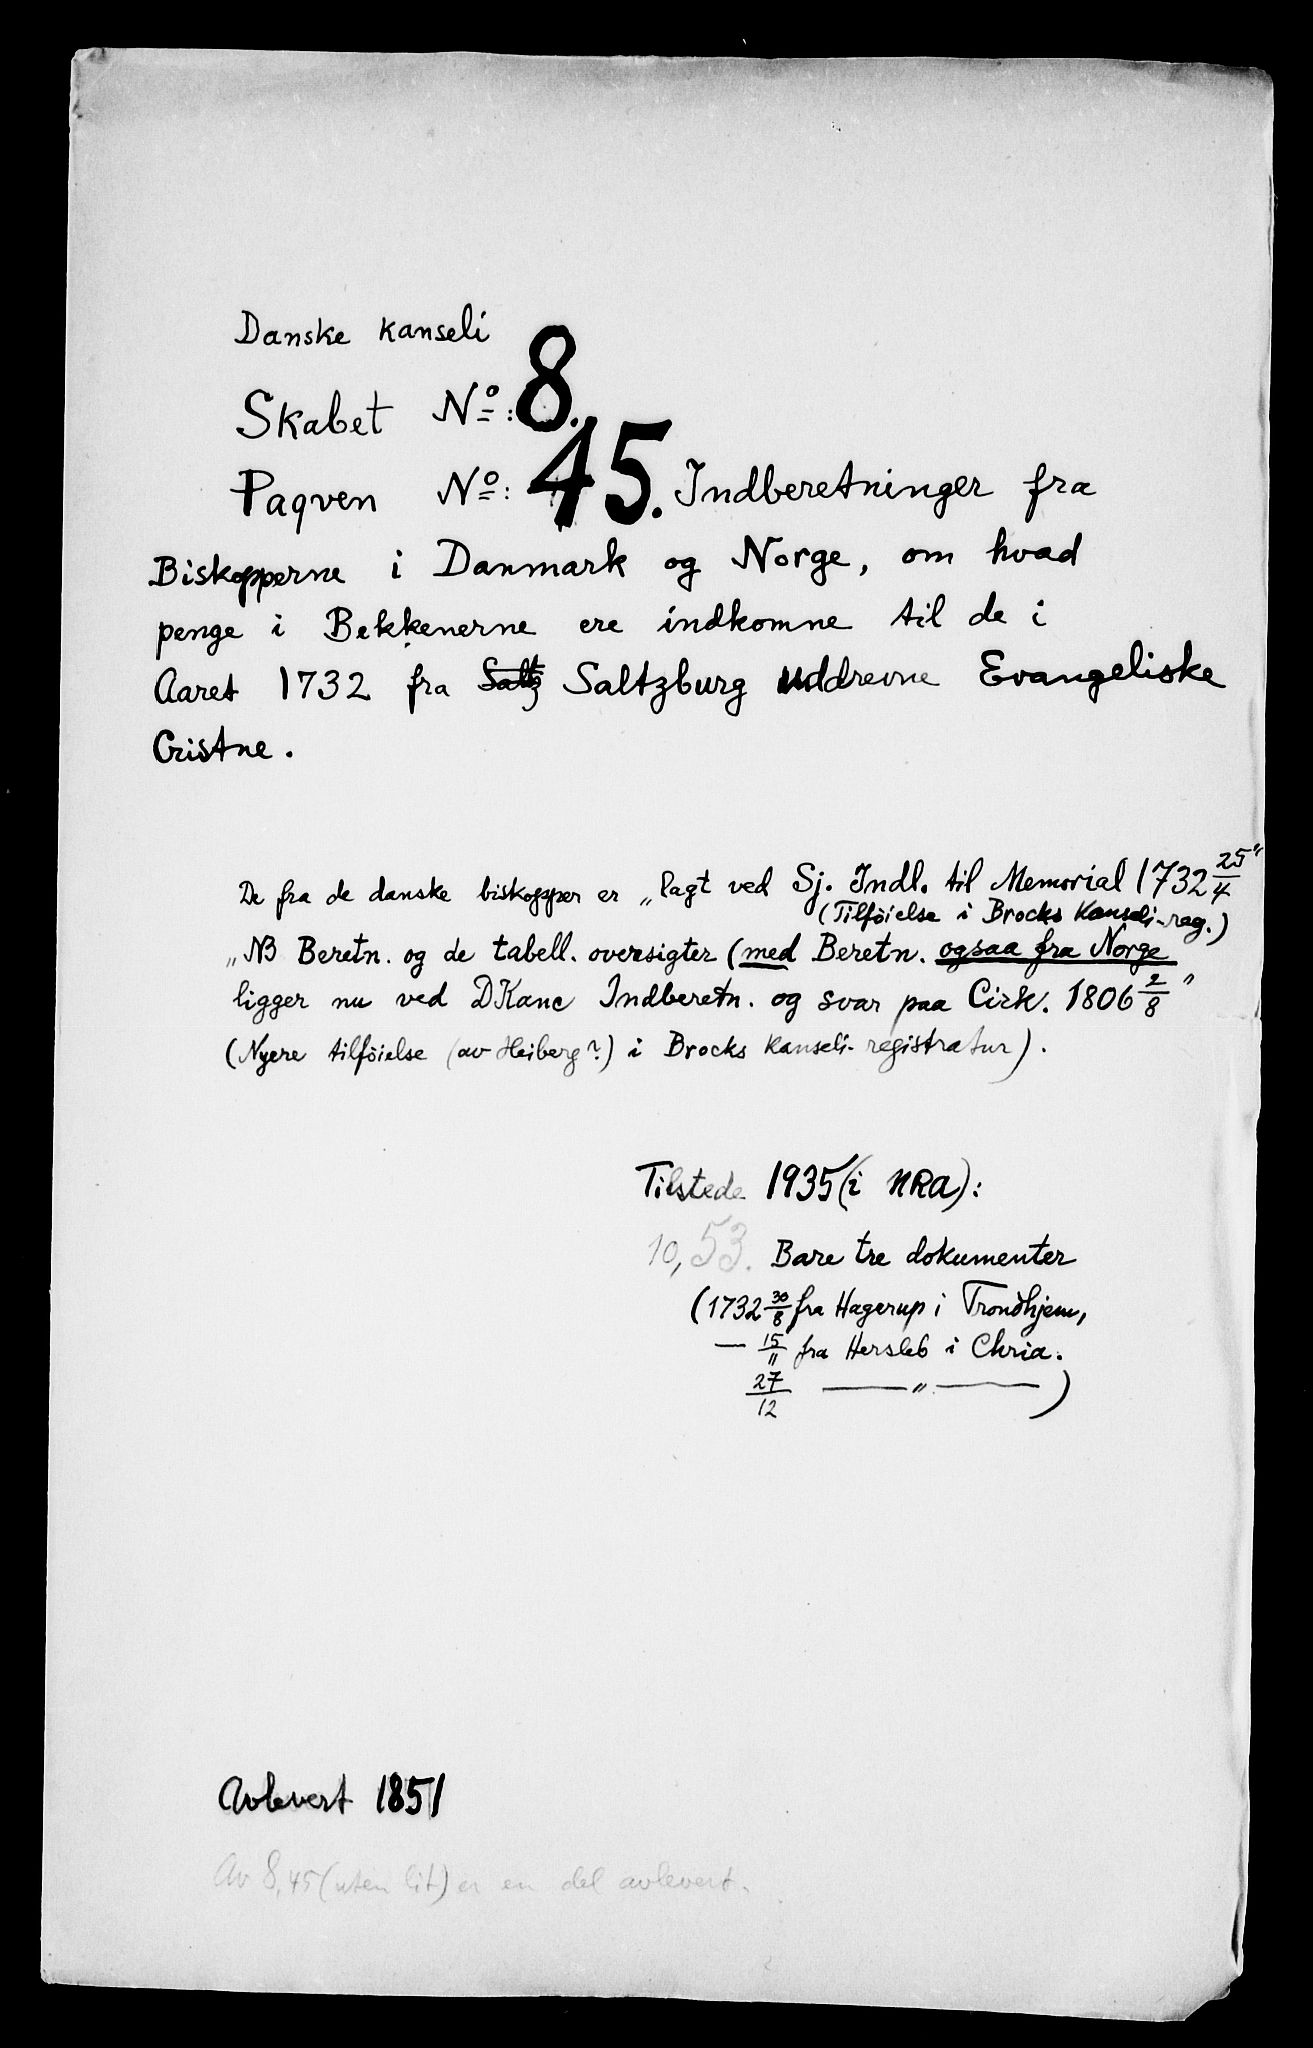 Danske kanseli
Skabet No: 8.
Paqven No: 45. Indberetninger fra
Biskopperne i Danmark og Norge, om hvad
penge i Bekkenerne ere indkomne til de i
Aaret 1732 fra Saltz Saltzburg uddrevne Evangeliske
Cristne.
De fra de danske biskopper er „lagt ved Sj. Indl. til Memorial 1732 25/4"
(Tilföielse i Brocks Kanseli-reg.)
„NB Beretn. og de tabell. oversigter (med Beretn. ogsaa fra Norge
ligger nu ved DKanc Indberetn. og svar paa Cirk. 1806 2/8"
(Nyere tilföielse (av Heiberg?) i Brocks Kanseli-registratur).
Tilstede 1935 (i NRA):
10,53. Bare tre dokumenter
(1732 30/8 fra Hagerup i Trondhjem,
— 15/11 fra Hersleb i Chria.
27/12 — „ —)
Avlevert 1851
Av 8,45 (uten lit) er en del avlevert.